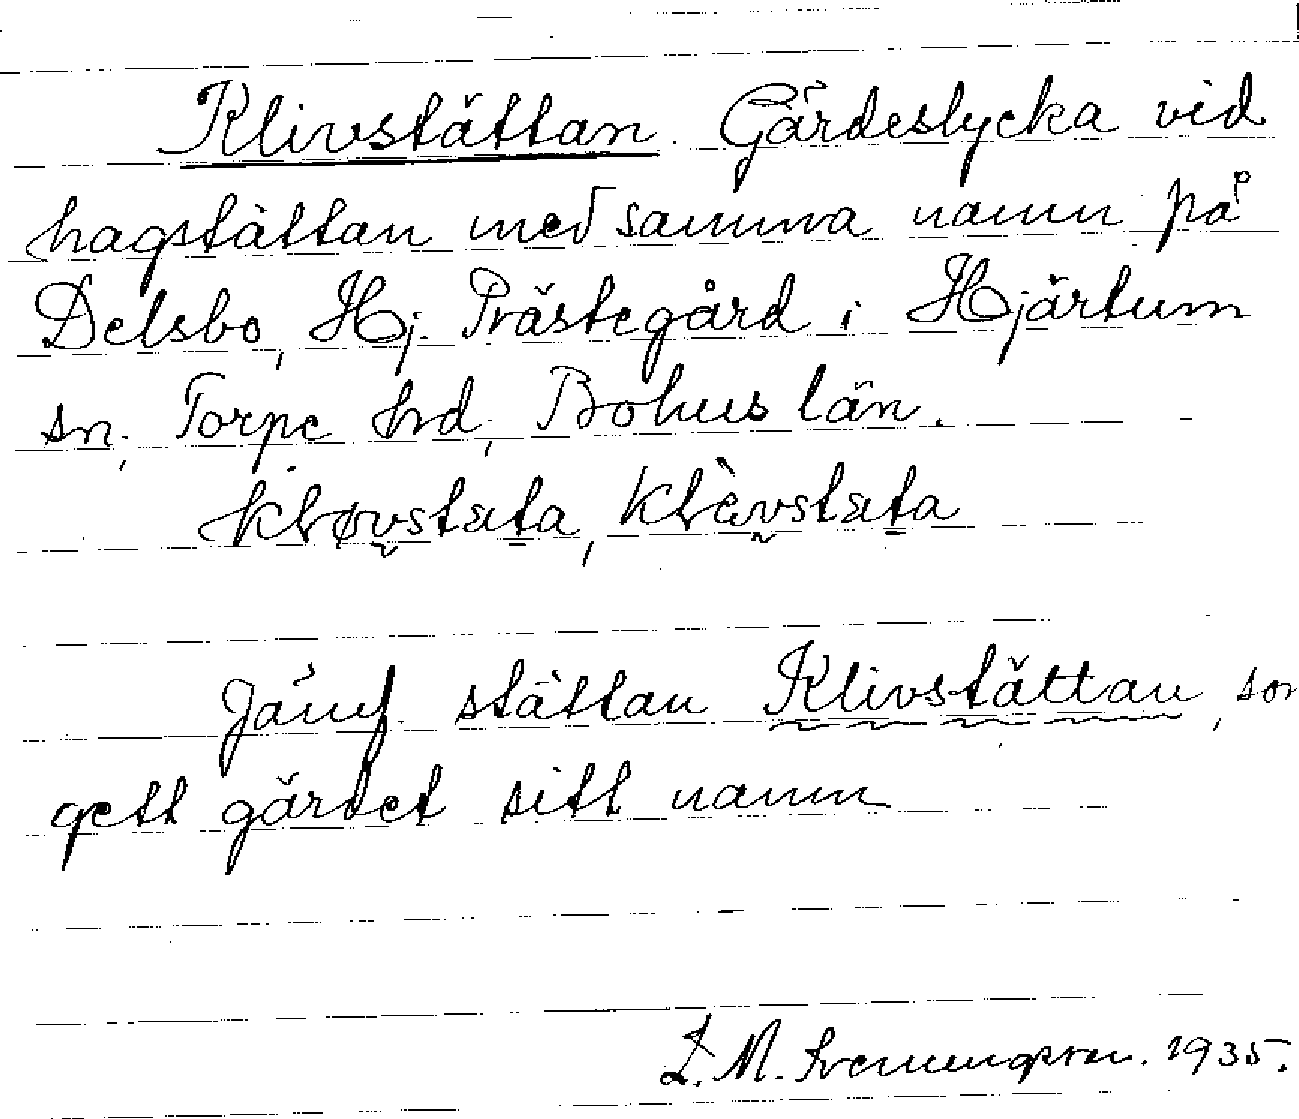 Klivstättan. Gärdeslycka vid
hagstättan med samma namn på
Delsbo, Hj. Prästegård i Hjärtum
sn, Torpe hrd, Bohus län.
kløvstata, klèvstata
Jämf. stättan Klivstättan, som
gett gärdet sitt namn
L. M. Svenungsson. 1935.